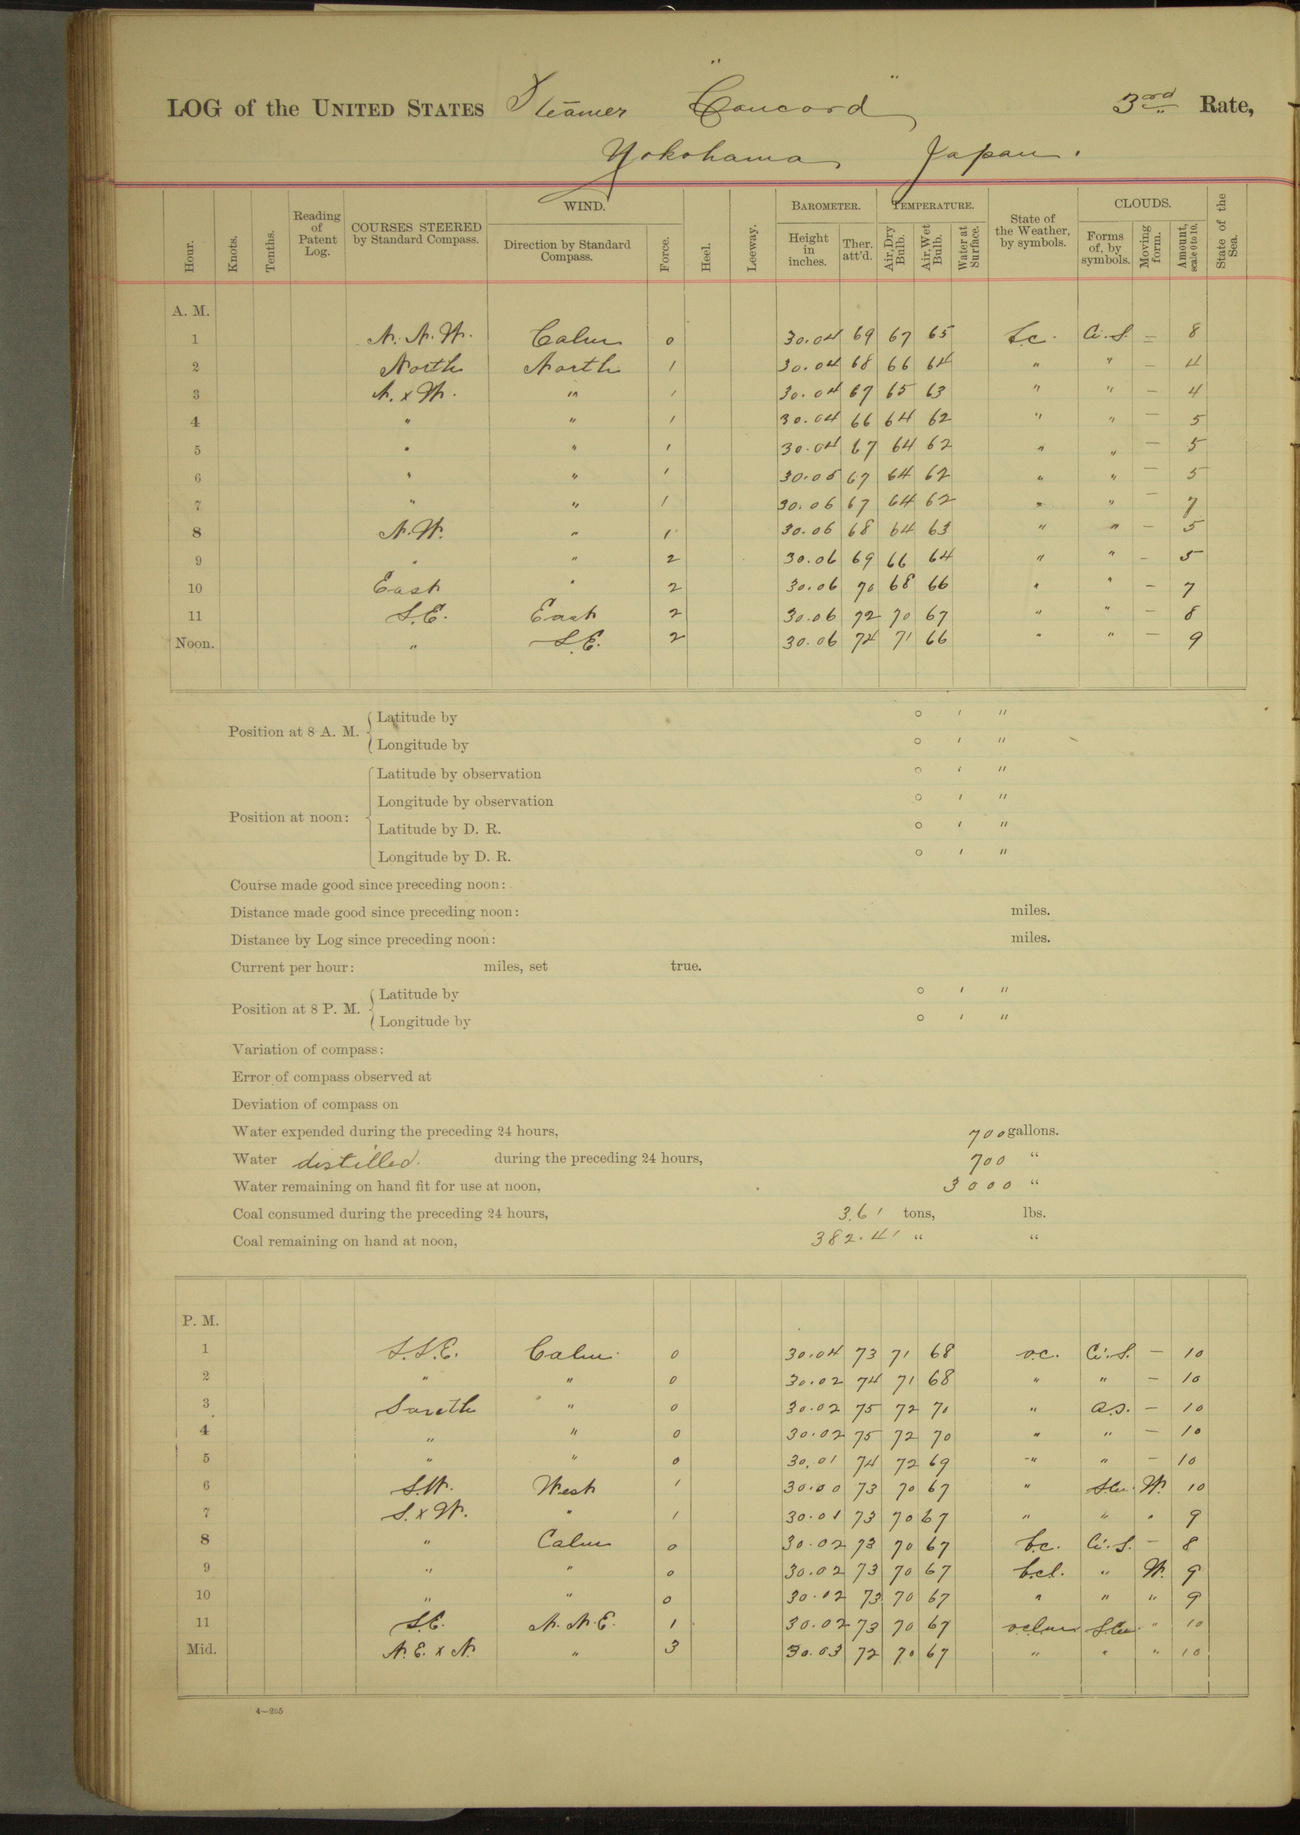 LOG of the UNITED STATES Steamer "Concord" 3rd Rate,
Yokohama, Japan.
Hour. Knots. Tenths. Reading of Patent Log. COURSES STEERED by Standard Compass. WIND. Direction by Standard Compass. Force. Heel. Leeway. BAROMETER. Height in inches. Ther. att'd. TEMPERATURE. Air, Dry Bulb. Air, Wet Bulb. Water at Surface. State of the Weather, by symbols. CLOUDS. Forms of, by symbols. Moving form. Amount, scale 0 to 10. State of the Sea.
A. M.
1 N.N.W. Calm 0 30.04 69 67 65 b.c. Ci.S. — 8
2 North North 1 30.04 68 66 64 " " — 4
3 N. x W. " 1 30.04 67 65 63 " " — 4
4 " " 1 30.04 66 64 62 " " — 5
5 " " 1 30.04 67 64 62 " " — 5
6 " " 1 30.05 67 64 62 " " — 5
7 " " 1 30.06 67 64 62 " " — 7
8 N.W. " 1 30.06 68 64 63 " " — 5
9 " " 2 30.06 69 66 64 " " — 5
10 East " 2 30.06 70 68 66 " " — 7
11 S.E. East 2 30.06 72 70 67 " " — 8
Noon. " S.E. 2 30.06 74 71 66 " " — 9
Position at 8 A. M. Latitude by ° ' "
Longitude by ° ' "
Position at noon: Latitude by observation ° ' "
Longitude by observation ° ' "
Latitude by D. R. ° ' "
Longitude by D. R. ° ' "
Course made good since preceding noon:
Distance made good since preceding noon: miles.
Distance by Log since preceding noon: miles.
Current per hour: miles, set true.
Position at 8 P. M. Latitude by ° ' "
Longitude by ° ' "
Variation of compass:
Error of compass observed at
Deviation of compass on
Water expended during the preceding 24 hours, 700 gallons.
Water distilled. during the preceding 24 hours, 700 "
Water remaining on hand fit for use at noon, 3000 "
Coal consumed during the preceding 24 hours, 3.61 tons, lbs.
Coal remaining on hand at noon, 382.41 " "
P. M.
1 S.S.E. Calm 0 30.04 73 71 68 o.c. Ci.S. — 10
2 " " 0 30.02 74 71 68 " " — 10
3 South " 0 30.02 75 72 70 " a.s. — 10
4 " " 0 30.02 75 72 70 " " — 10
5 " " 0 30.01 74 72 69 " " — 10
6 S.W. West 1 30.00 73 70 67 " W. 10
7 S. x W. " 1 30.01 73 70 67 " " " 9
8 " Calm 0 30.02 73 70 67 b.c. Ci.S. — 8
9 " " 0 30.02 73 70 67 b.c.l. " W. 9
10 " " 0 30.02 73 70 67 " " " 9
11 S.E. N.N.E. 1 30.02 73 70 67 " 10
Mid. N.E. x N. " 3 30.03 72 70 67 " " " 10
4—205